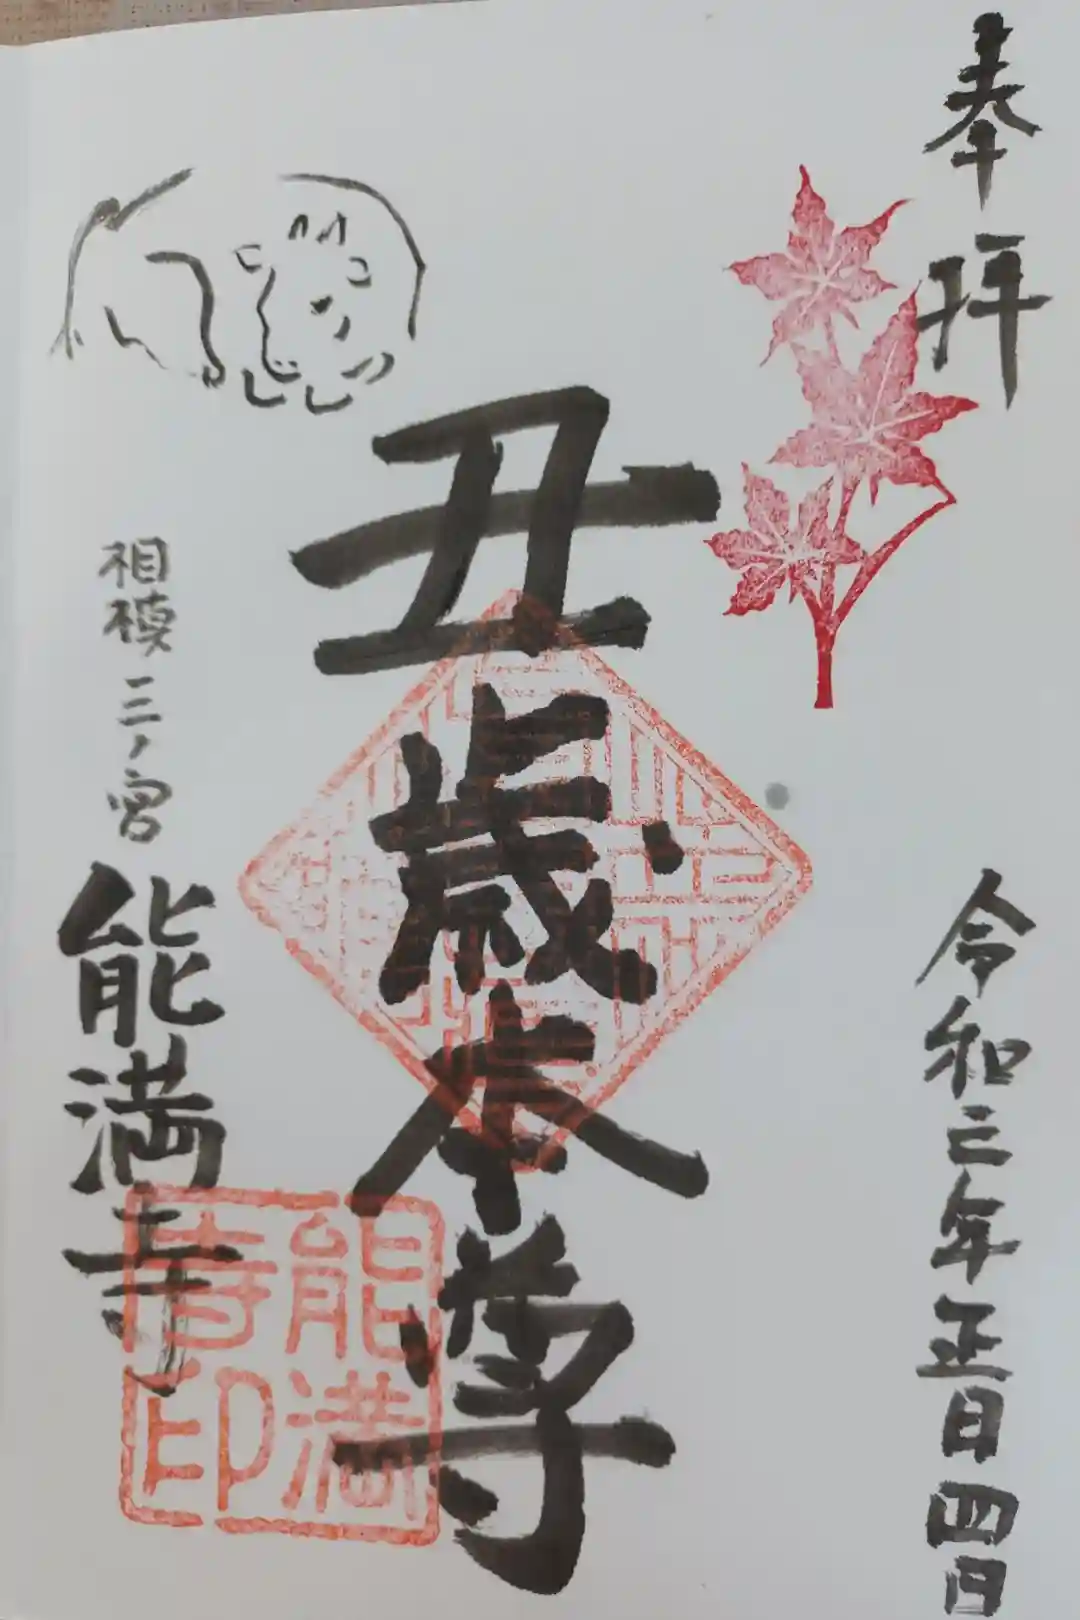 奉拝
令和三年正月四日
丑歳本尊
相模三ノ宮
能満寺
能満
寺印